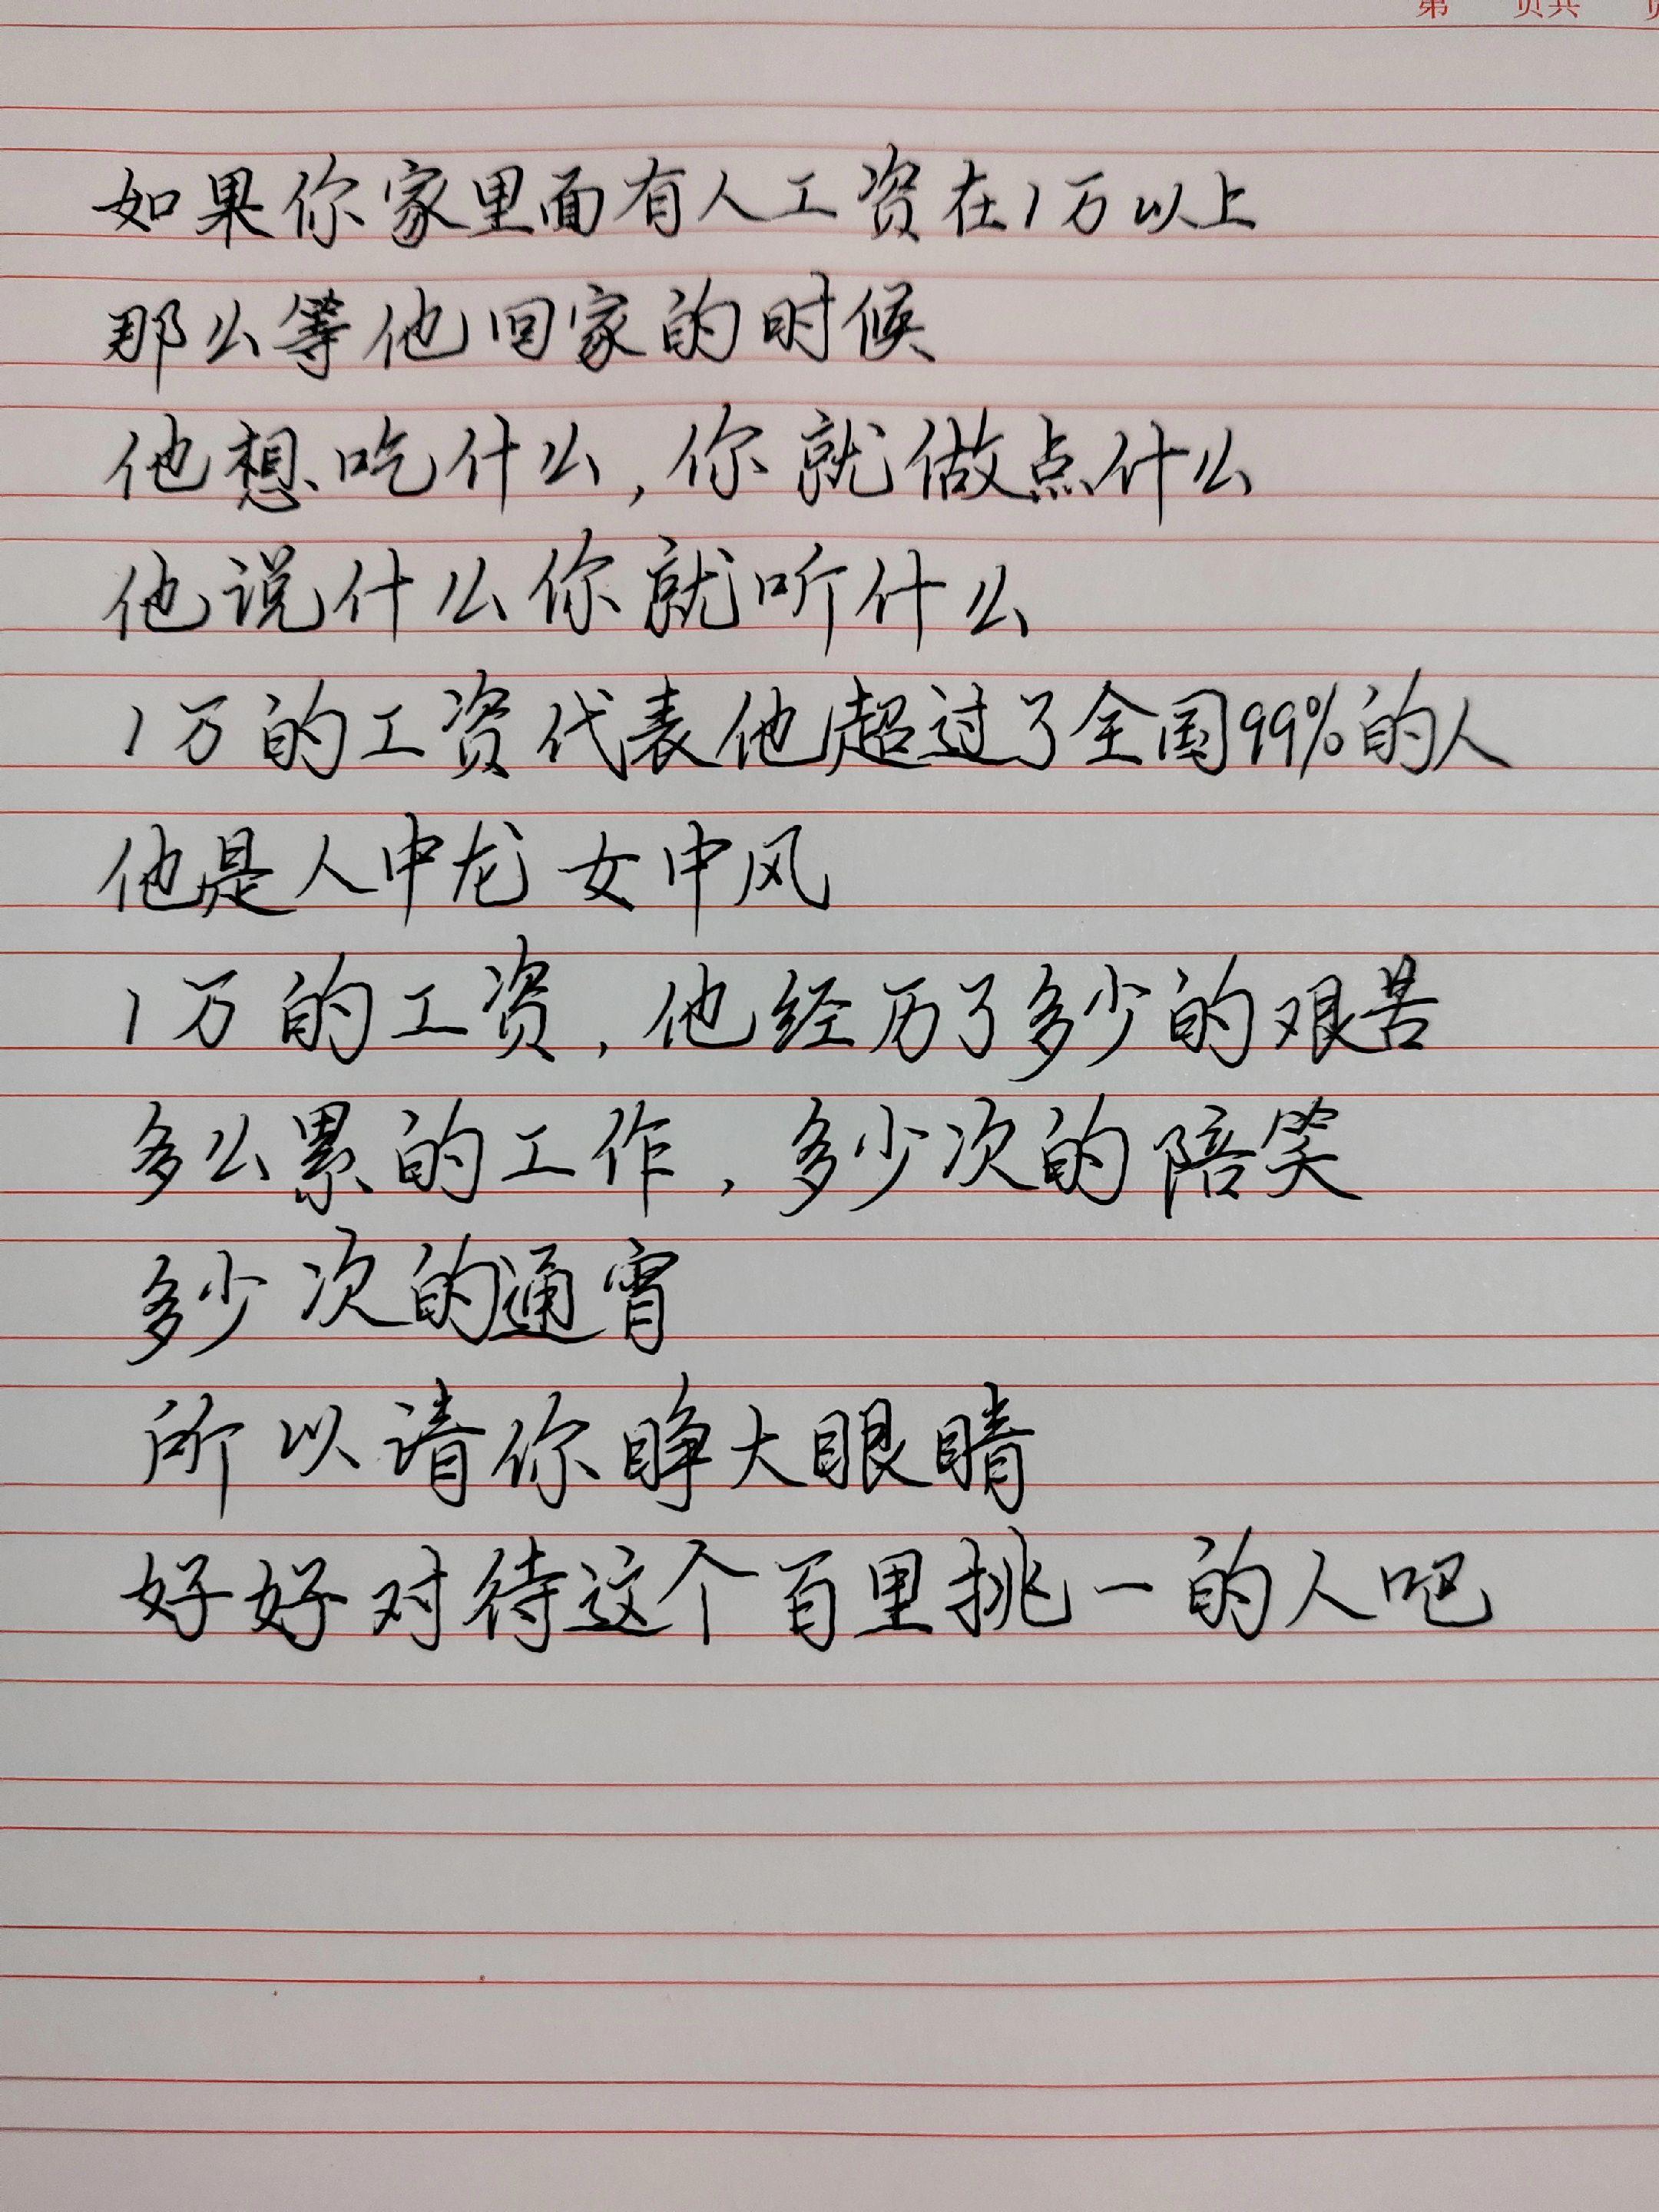 第 页共 页
如果你家里面有人工资在1万以上
那么等他回家的时候
他想吃什么,你就做点什么
他说什么你就听什么
1万的工资代表他超过了全国99%的人
他是人中龙 女中风
1万的工资,他经历了多少的艰苦
多么累的工作,多少次的陪笑
多少次的通宵
所以请你睁大眼睛
好好对待这个百里挑一的人吧